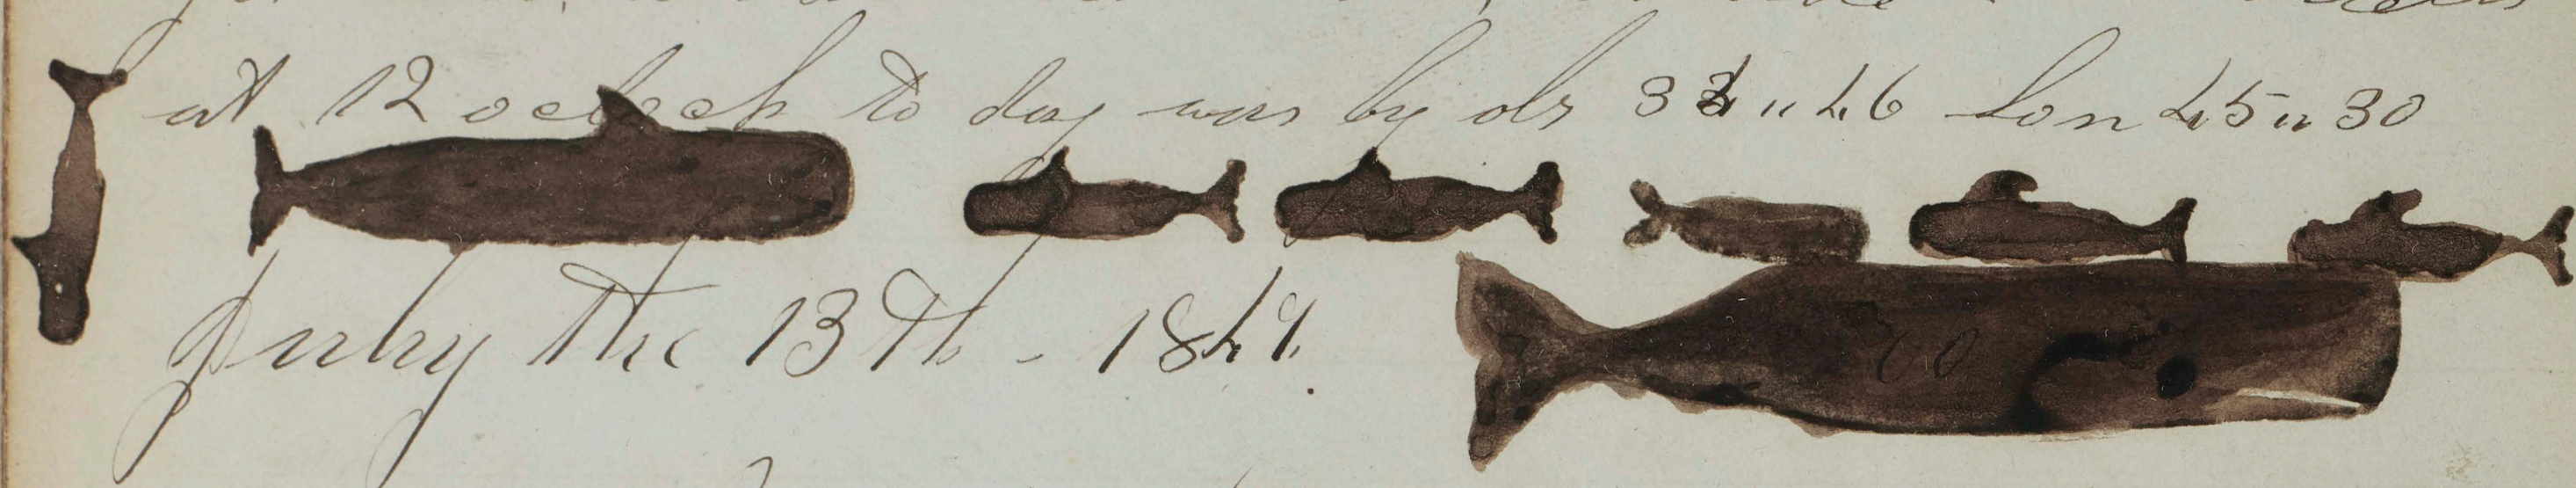 at 12 oclock to day was by obs 34 " 46 Lon 45 " 30
July the 13th - 1849.
60